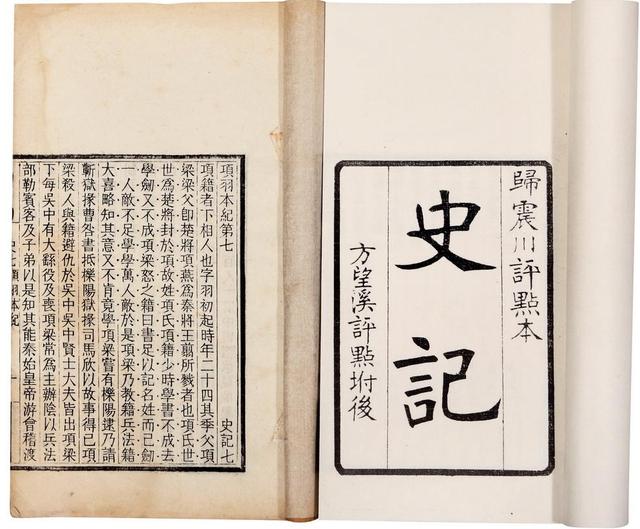 歸震川評點本
史記
方望溪評點坿後
項羽本紀第七
史記七
項籍者下相人也字羽初起時年二十四其季父項
梁梁父卽楚將項燕爲秦將王翦所戮者也項氏世
世爲楚將封於項故姓項氏項籍少時學書不成去
學劒又不成項梁怒之籍曰書足以記名姓而已劒
一人敵不足學學萬人敵於是項梁乃敎籍兵法籍
大喜略知其意又不肯竟學項梁嘗有櫟陽逮乃請
蘄獄掾曹咎書抵櫟陽獄掾司馬欣以故事得已項
梁殺人與籍避仇於吳中吳中賢士大夫皆出項梁
下每吳中有大繇役及喪項梁常爲主辦陰以兵法
部勒賓客及子弟以是知其能秦始皇帝游會稽渡
項羽本紀